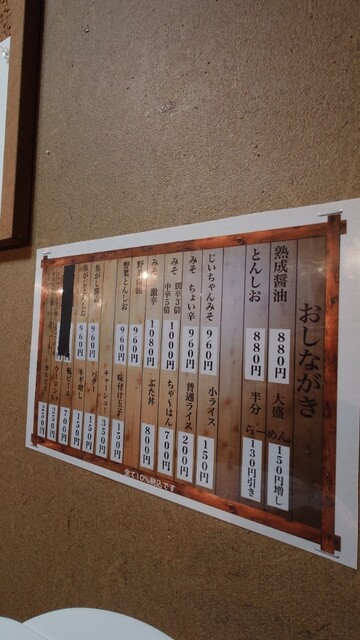 おしながき
熟成醤油 880円
とんしお 880円
じいちゃんみそ 960円
みそ ちょい辛 960円
みそ 中華5倍 1000円
みそ 激辛 1080円
960円
野菜とんしお 960円
960円
960円
大盛 めん 150円増し
半分 らー 130円引き
小ライス 150円
普通ライス 200円
ちゃーはん 700円
ぶた丼 800円
味付け玉子 150円
チャーシュー 350円
バター 150円
ネギ増し 150円
瓶ビール 700円
250円
250円
全て10%税込です